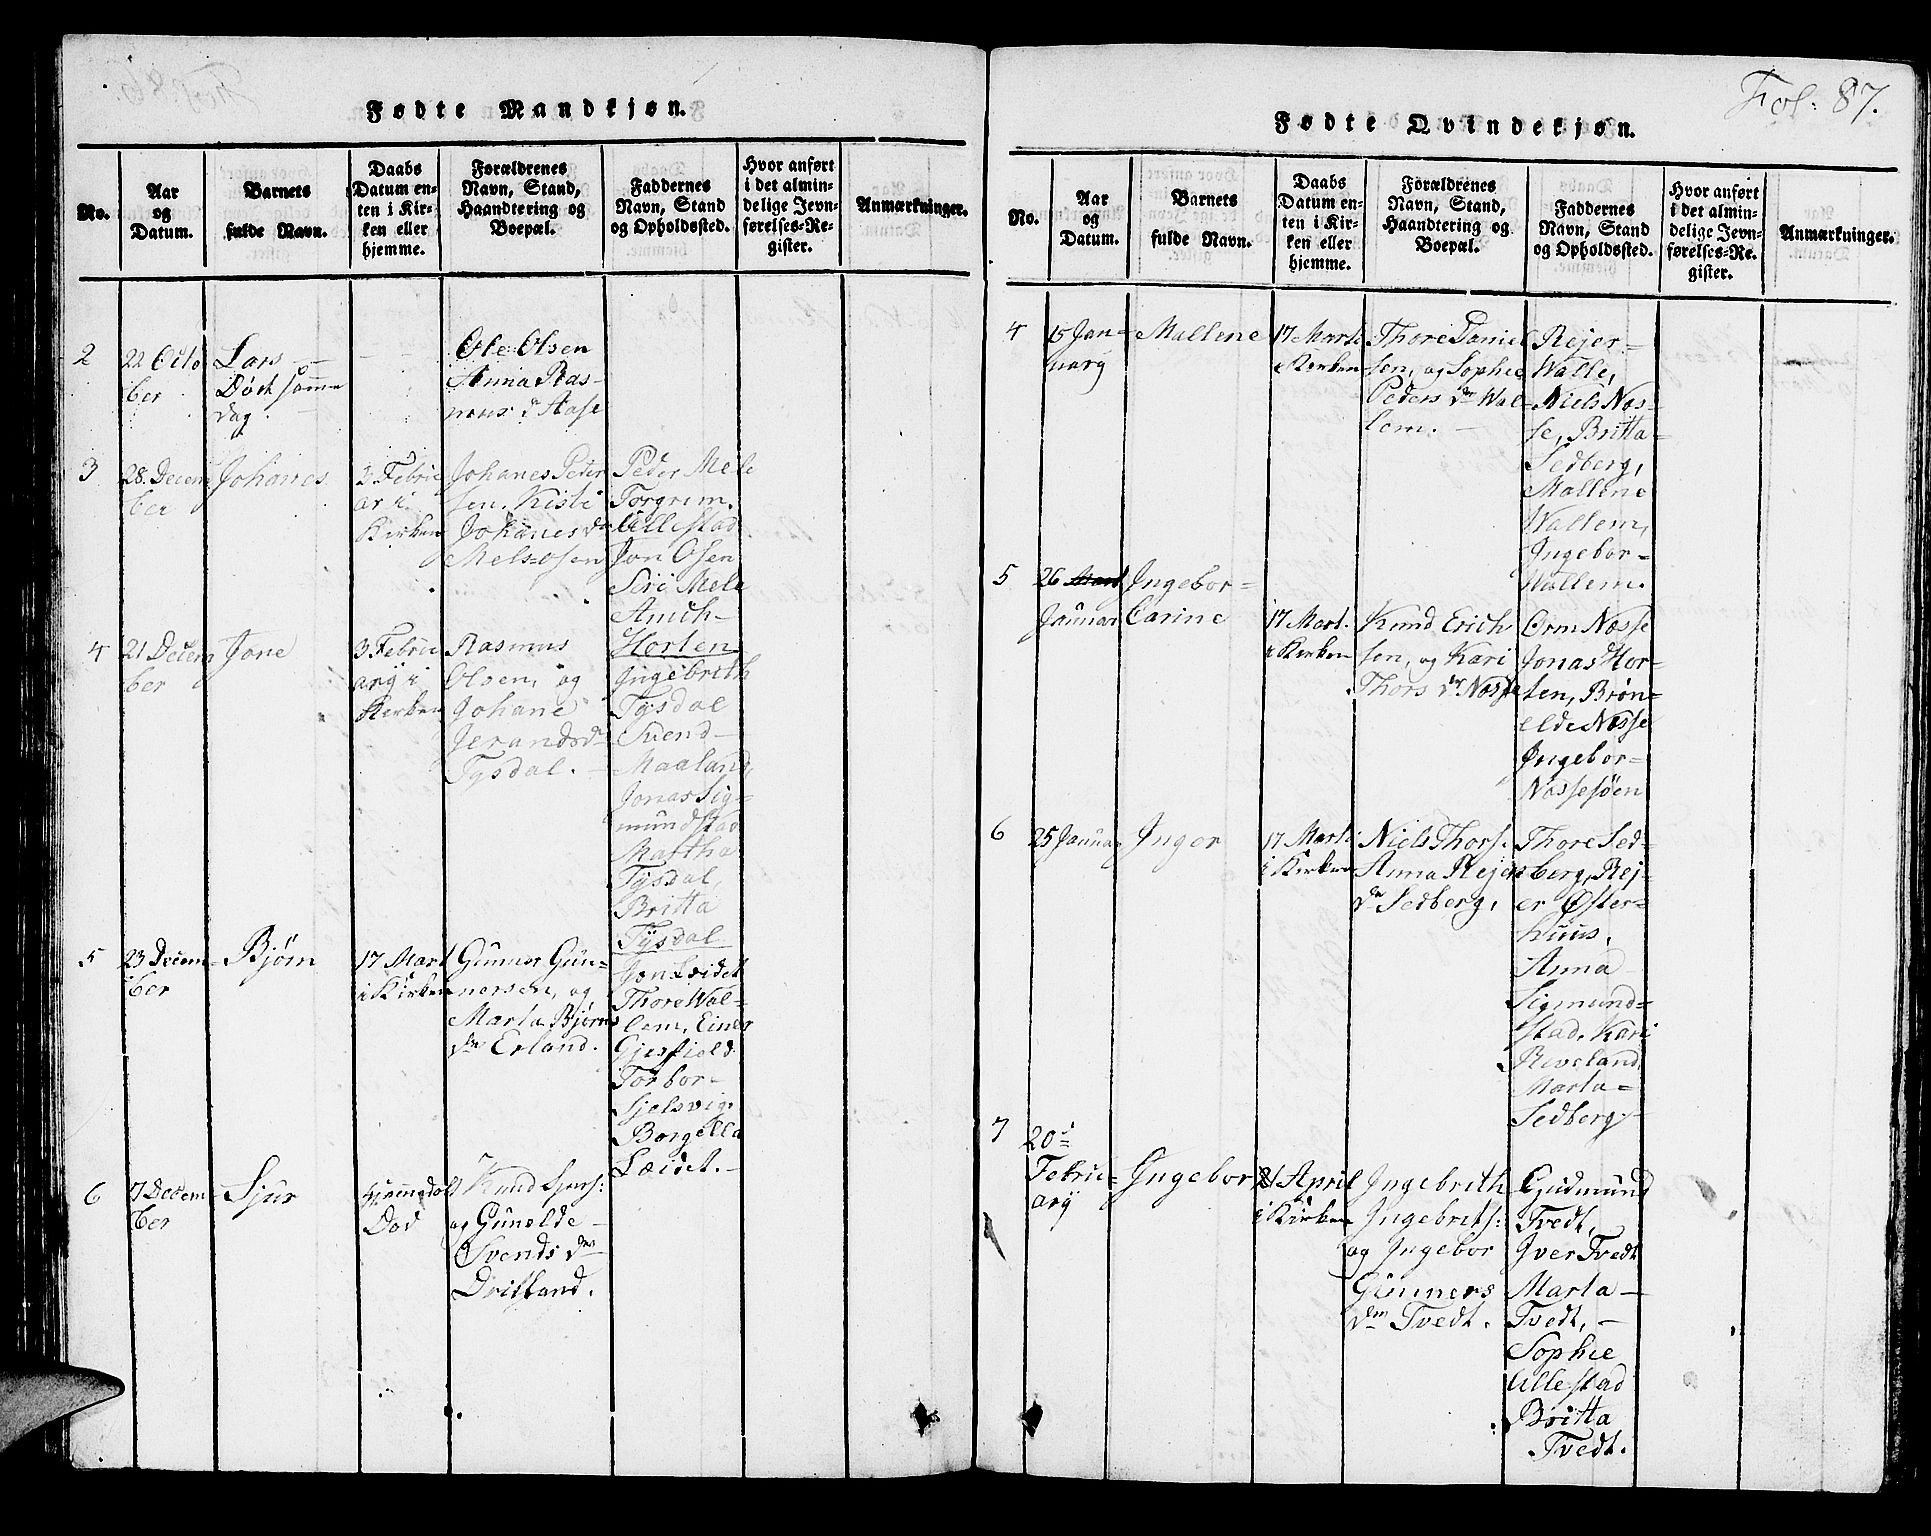 Fol: 87.
Fødte Mandkjøn.
No.
Aar
og
Datum.
Barnets
fulde Navn.
Daabs
Datum en-
ten i Kir-
ken eller
hjemme.
Forældrenes
Navn, Stand,
Haandtering og
Boepæl.
Faddernes
Navn, Stand
og Opholdssted.
Hvor anført
i det almin-
delige Jevn-
førelses-Re-
gister.
Anmærkninger.
2
22 Octo
ber
Lars
Død samme
dag.
Ole Olsen
Anna Ras-
mus dr Aase
3
28. Decem
ber
Johanes
2 Februe
ar i
Kirken
Johanes Peder
sen, Kisti
Johanes dr
Mels-osen
Peder Mele
Torgrim
Ullestad
Jon Osen
Siri Mele
Horten
4
21 Decem
ber
Jone
3 Febru
ary i
Kirken
Rasmus
Olsen, og
Johane
Jerands dr
Tysdal.
Ingebrith
Tysdal
Svend
Maaland,
Jonas Sig-
mundstad
Martha
Tysdal,
Britta
Tysdal
5
23 Decem-
ber
Bjørn
17 Mart
i Kirken
Gunner Gun-
nersen, og
Marta Bjørns
dr Erland.
Jon Leidet
Thore Wal-
lem, Einer
Gjesfield
Torbor-
Sjelsvig
Borgella
Læidet.
6
7 Decem
ber
Sjur
Hjemedøbt
Død
Knud Sjurs:
og Gunelde
Svends dr
Driftland.
Fødte Qvindekjøn.
No.
Aar
og
Datum.
Barnets
fulde Navn.
Daabs
Datum en-
ten i Kir-
ken eller
hjemme.
Forældrenes
Navn, Stand,
Haandtering og
Boepæl.
Faddernes
Navn, Stand
og Opholdssted.
Hvor anført
i det almin-
delige Jevn-
førelses-Re-
gister.
Anmærkninger.
4
15 Jan-
uarg
Mallene
17 Marti
Kirken
Thore Daniel
sen, og Sophie
Peders dr Wal-
lem.
Rejer-
Walle,
Niels Næs-
se, Britta
Sedberg,
Mallene
Wallem,
Ingebor-
Wallem.
5
26 Mart
Januar
Ingebor-
Carine
17 Mart.
i Kirken
Knud Erich
sen, og Kari
Thors dr Næsse
Orm Næsse
Jonas Hor-
ten, Brøn-
elde Næsse
Ingebor-
Næssesøen
6
25 Janua
Inger
17 Marti
i Kirken
Niels Thors.
Anna Rejers
dr Sedberg,
Thore Sed-
berg, Rej-
er Øster-
huus,
Anna
Sigmund-
stad, Kari
Riveland
Marta
Sedberg
7
20d
Februe-
ary
Ingebor
21 April
i Kirken
Ingebrith
Ingebrits:
og Ingebor
Gunners
dr Tvedt.
Gudmund
Tvedt,
Iver Tvedt
Marta
Tvedt,
Sophie
Ullestad
Britta
Tvedt.